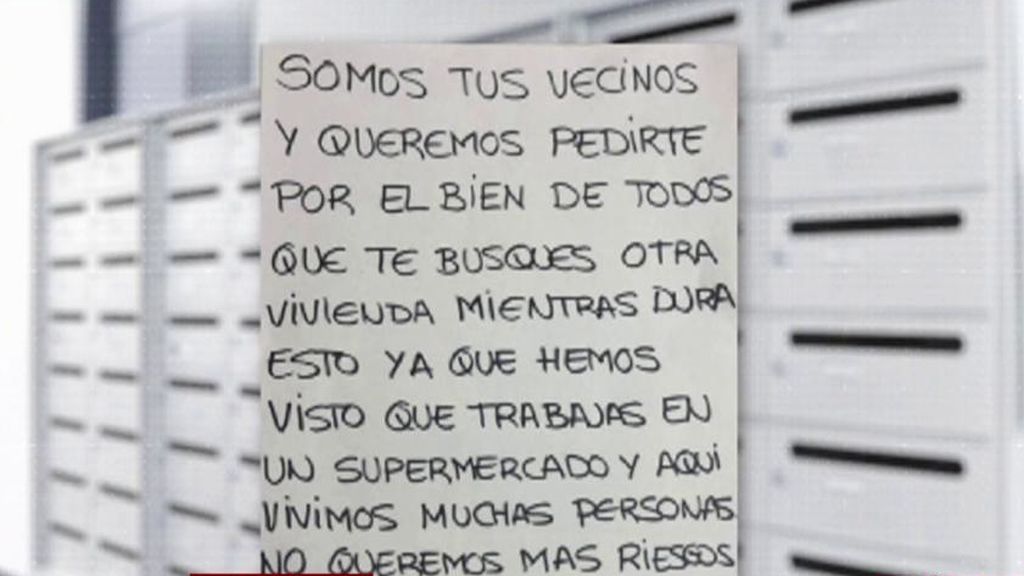 SOMOS TUS VECINOS
Y QUEREMOS PEDIRTE
POR EL BIEN DE TODOS
QUE TE BUSQUES OTRA
VIVIENDA MIENTRAS DURA
ESTO YA QUE HEMOS
VISTO QUE TRABAJAS EN
UN SUPERMERCADO Y AQUI
VIVIMOS MUCHAS PERSONAS
NO QUEREMOS MAS RIESGOS